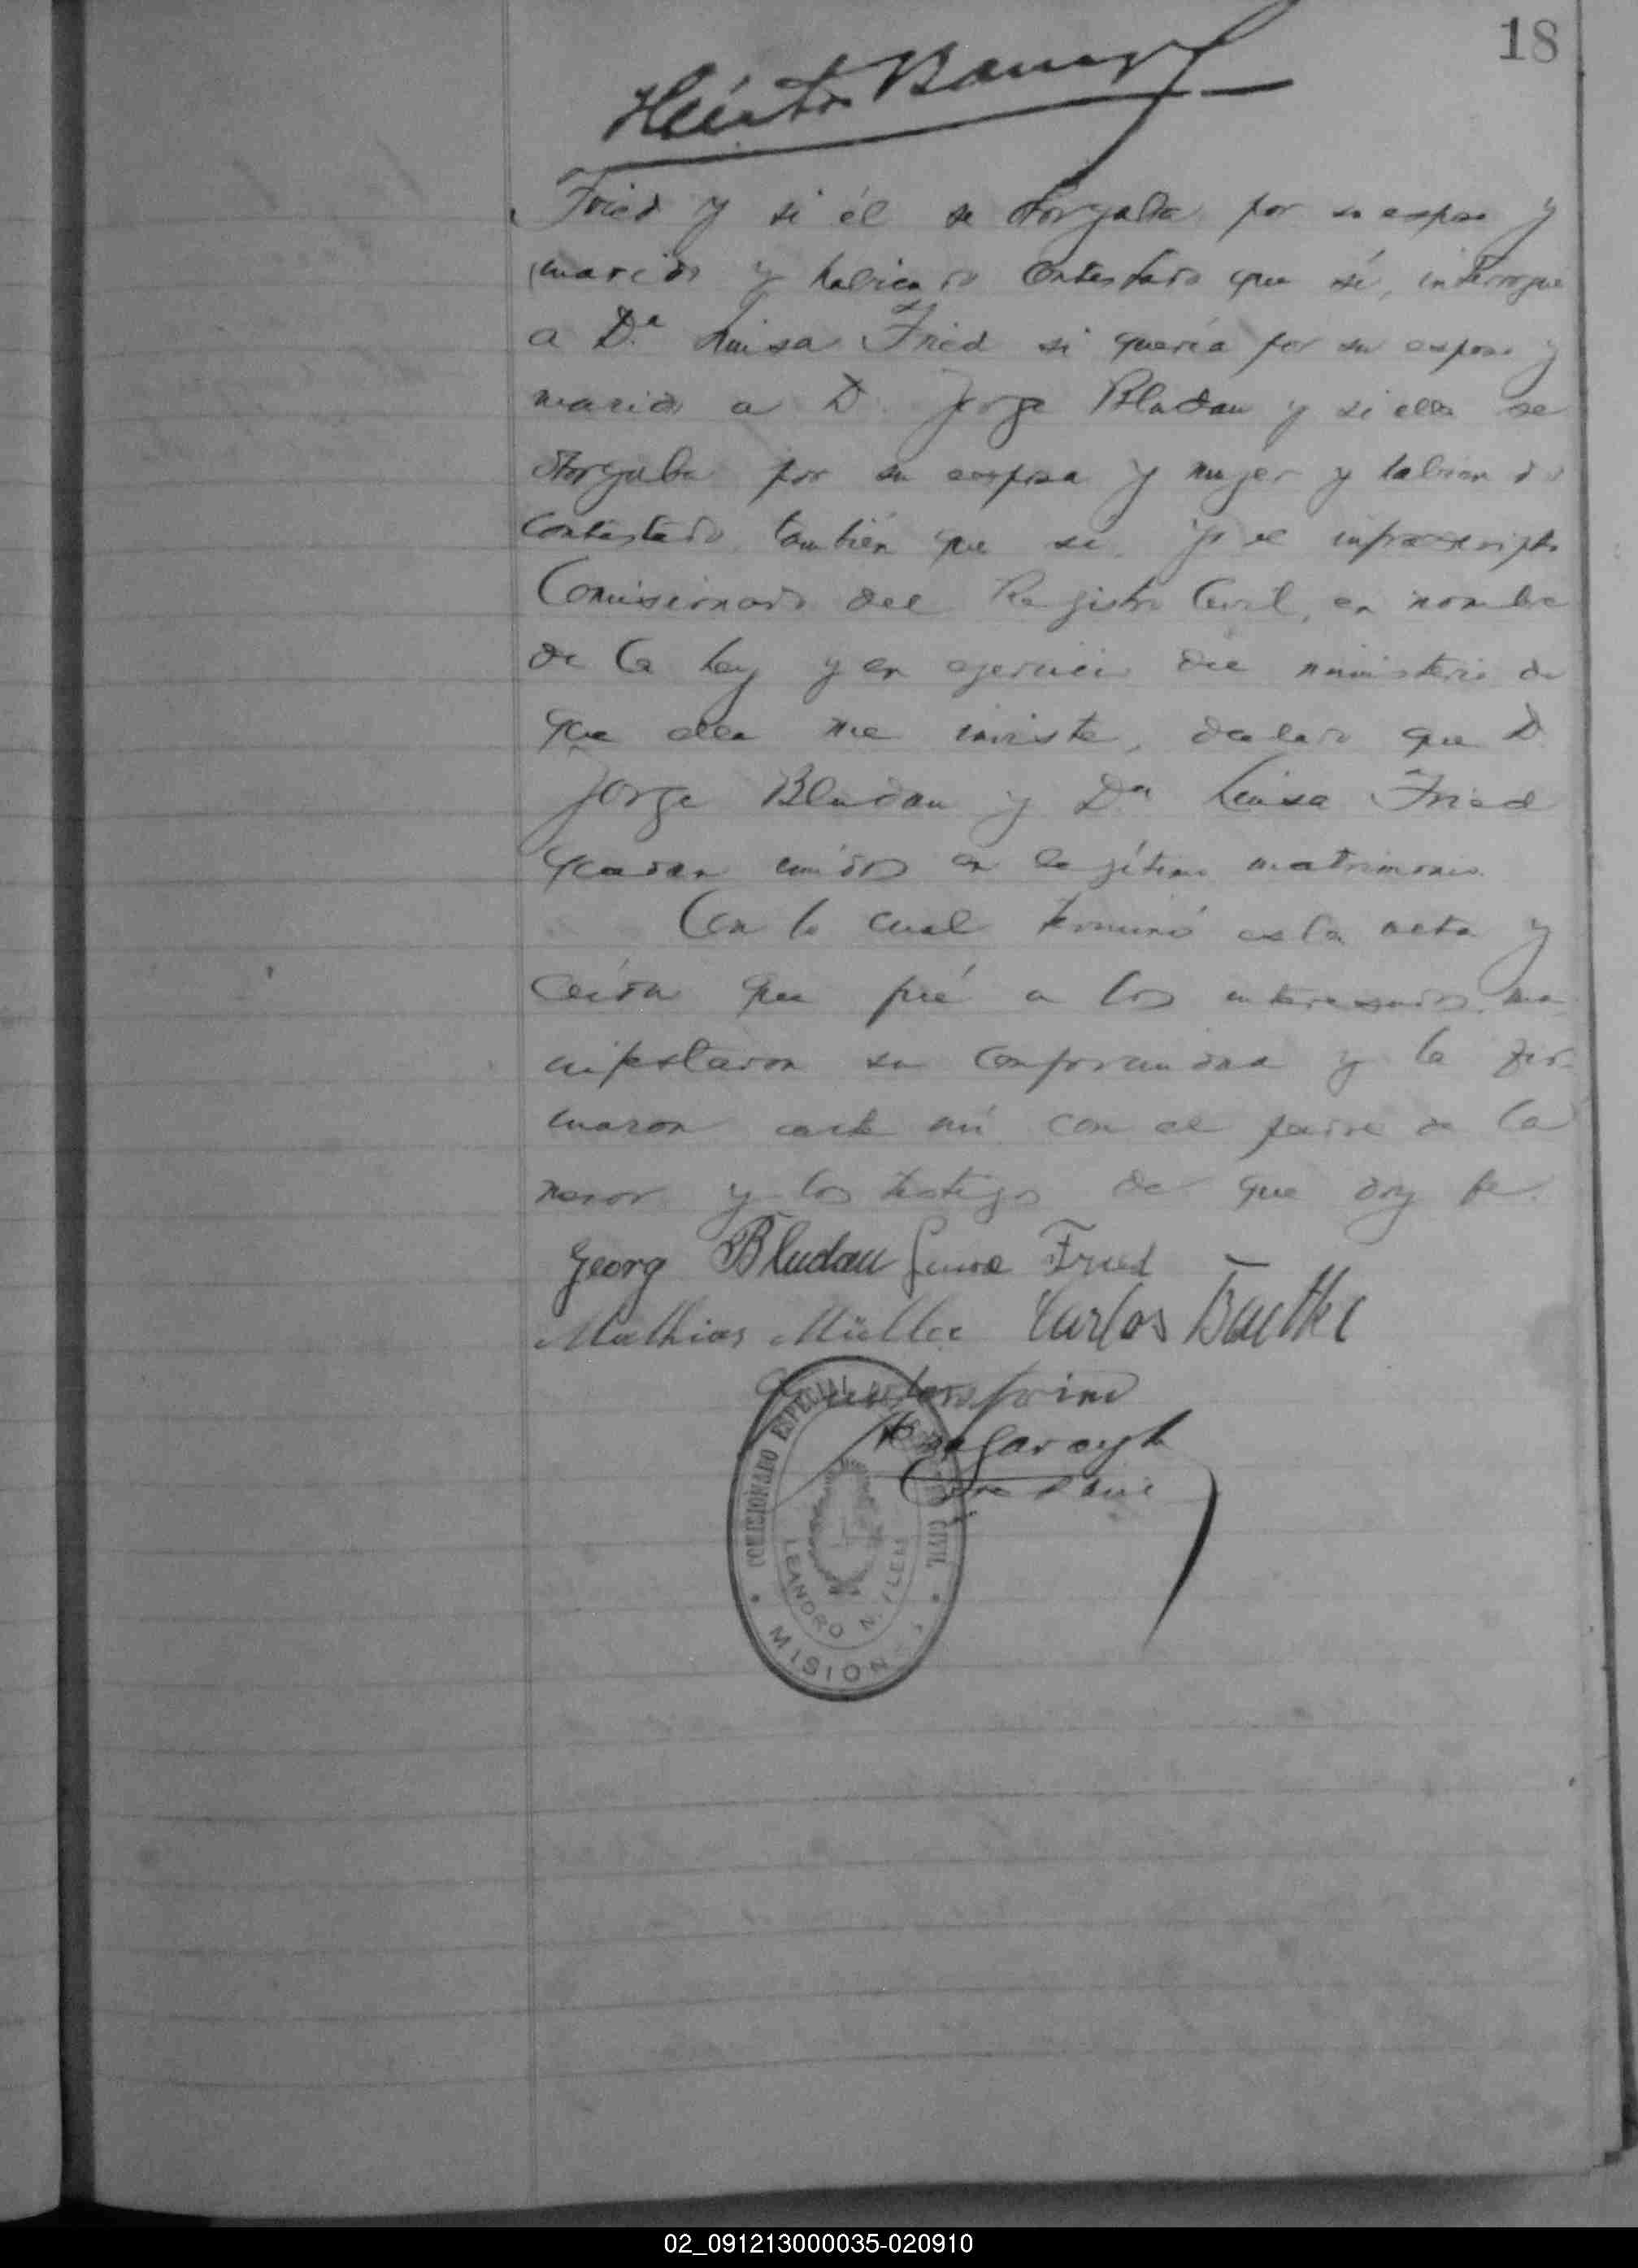 18
Héctor
Fried y si él se otorgaba por su esposo y
marido y habiendo contestado que sí, interrogué
a D.ª Luisa Fried si quería por su esposo y
marido a D. Jorge Bludau y si ella se
otorgaba por su esposa y mujer y habiendo
contestado también que si. Yo el infrascripto
Comisionado del Registro Civil, en nombre
de la Ley y en ejercicio del ministerio de
que ella me inviste, declaro que D.
Jorge Bludau y Dª Luisa Fried
quedan unidos en legítimo matrimonio.
Con lo cual terminó esta acta y
leída que fué a los interesados, ma
nifestaron su conformidad y la fir-
maron ante mí con el padre de la
menor y los testigos de que doy fe.
Georg Bludau Luise Fried
Mathias Müller Carlos
COMISIONADO ESPECIAL DEL REGISTRO CIVIL
LEANDRO N. ALEM
MISIONES
02_091213000035-020910